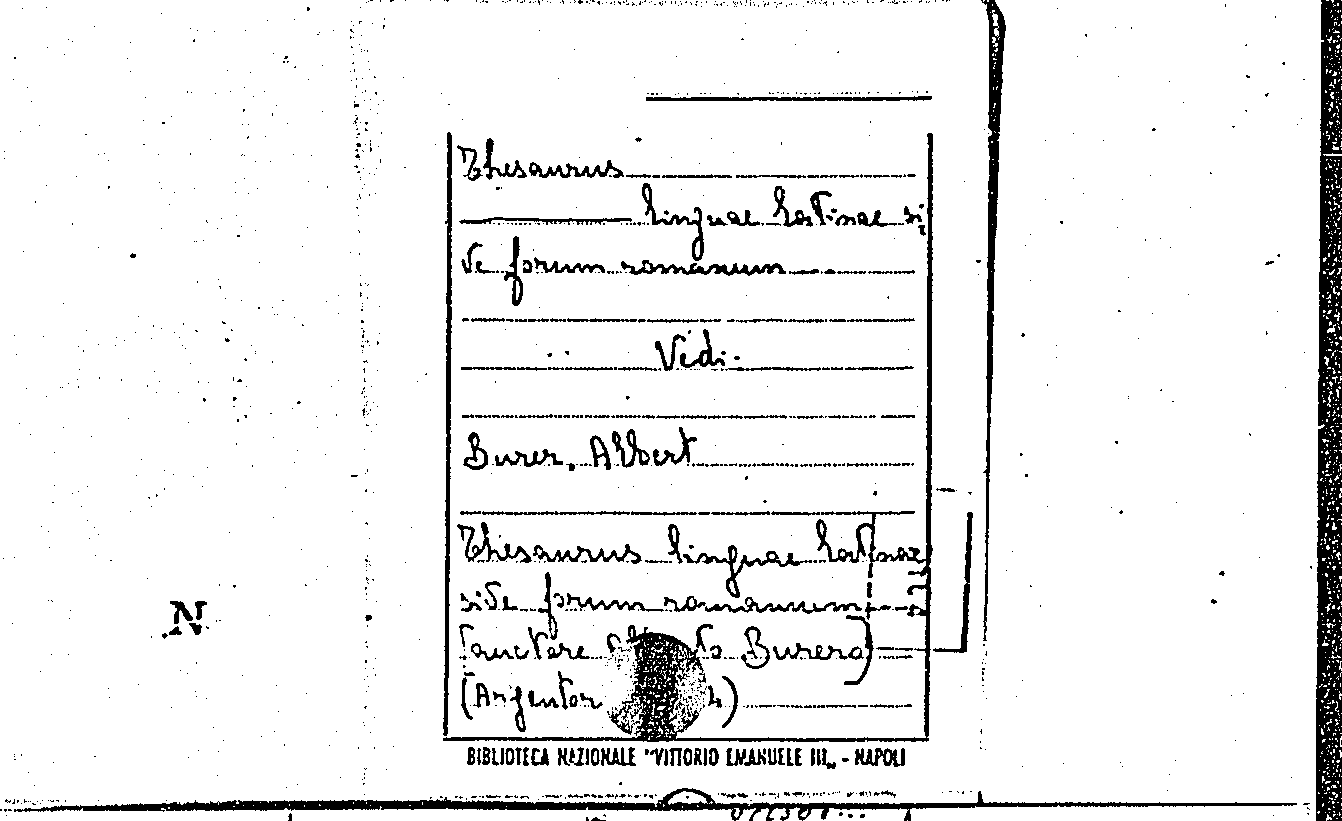 Thesaurus
linguae latinae si
ve forum romanum...
Vedi.
Burer, Albert
Thesaurus linguae latinae
sive forum romanum...
[auctore Burero]
(Argentor
N
BIBLIOTECA NAZIONALE "VITTORIO EMANUELE III„ - NAPOLI